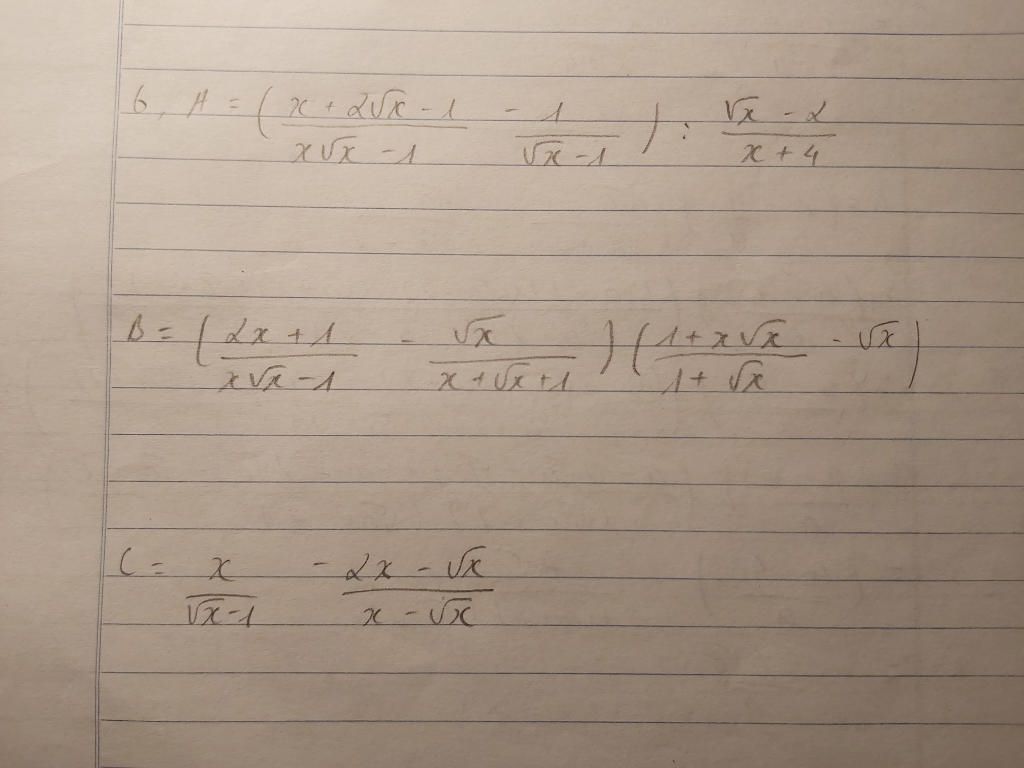 6, A = ( (x + 2√x - 1)/(x√x - 1) - 1/(√x - 1) ) : (√x - 2)/(x + 4)
B = ( (2x + 1)/(x√x - 1) - √x/(x + √x + 1) ) ( (1 + x√x)/(1 + √x) - √x )
C = x/(√x - 1) - (2x - √x)/(x - √x)